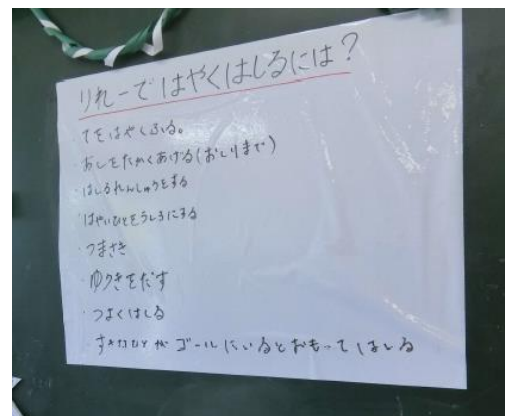 りれーではやくはしるには?
てをはやくふる。
あしをたかくあげる(おしりまで)
・はしるれんしゅうをする
・はやいひとをうしろにする
・つまさき
・ゆうきをだす
・つよくはしる
・すきなひとがゴールにいるとおもってはしる